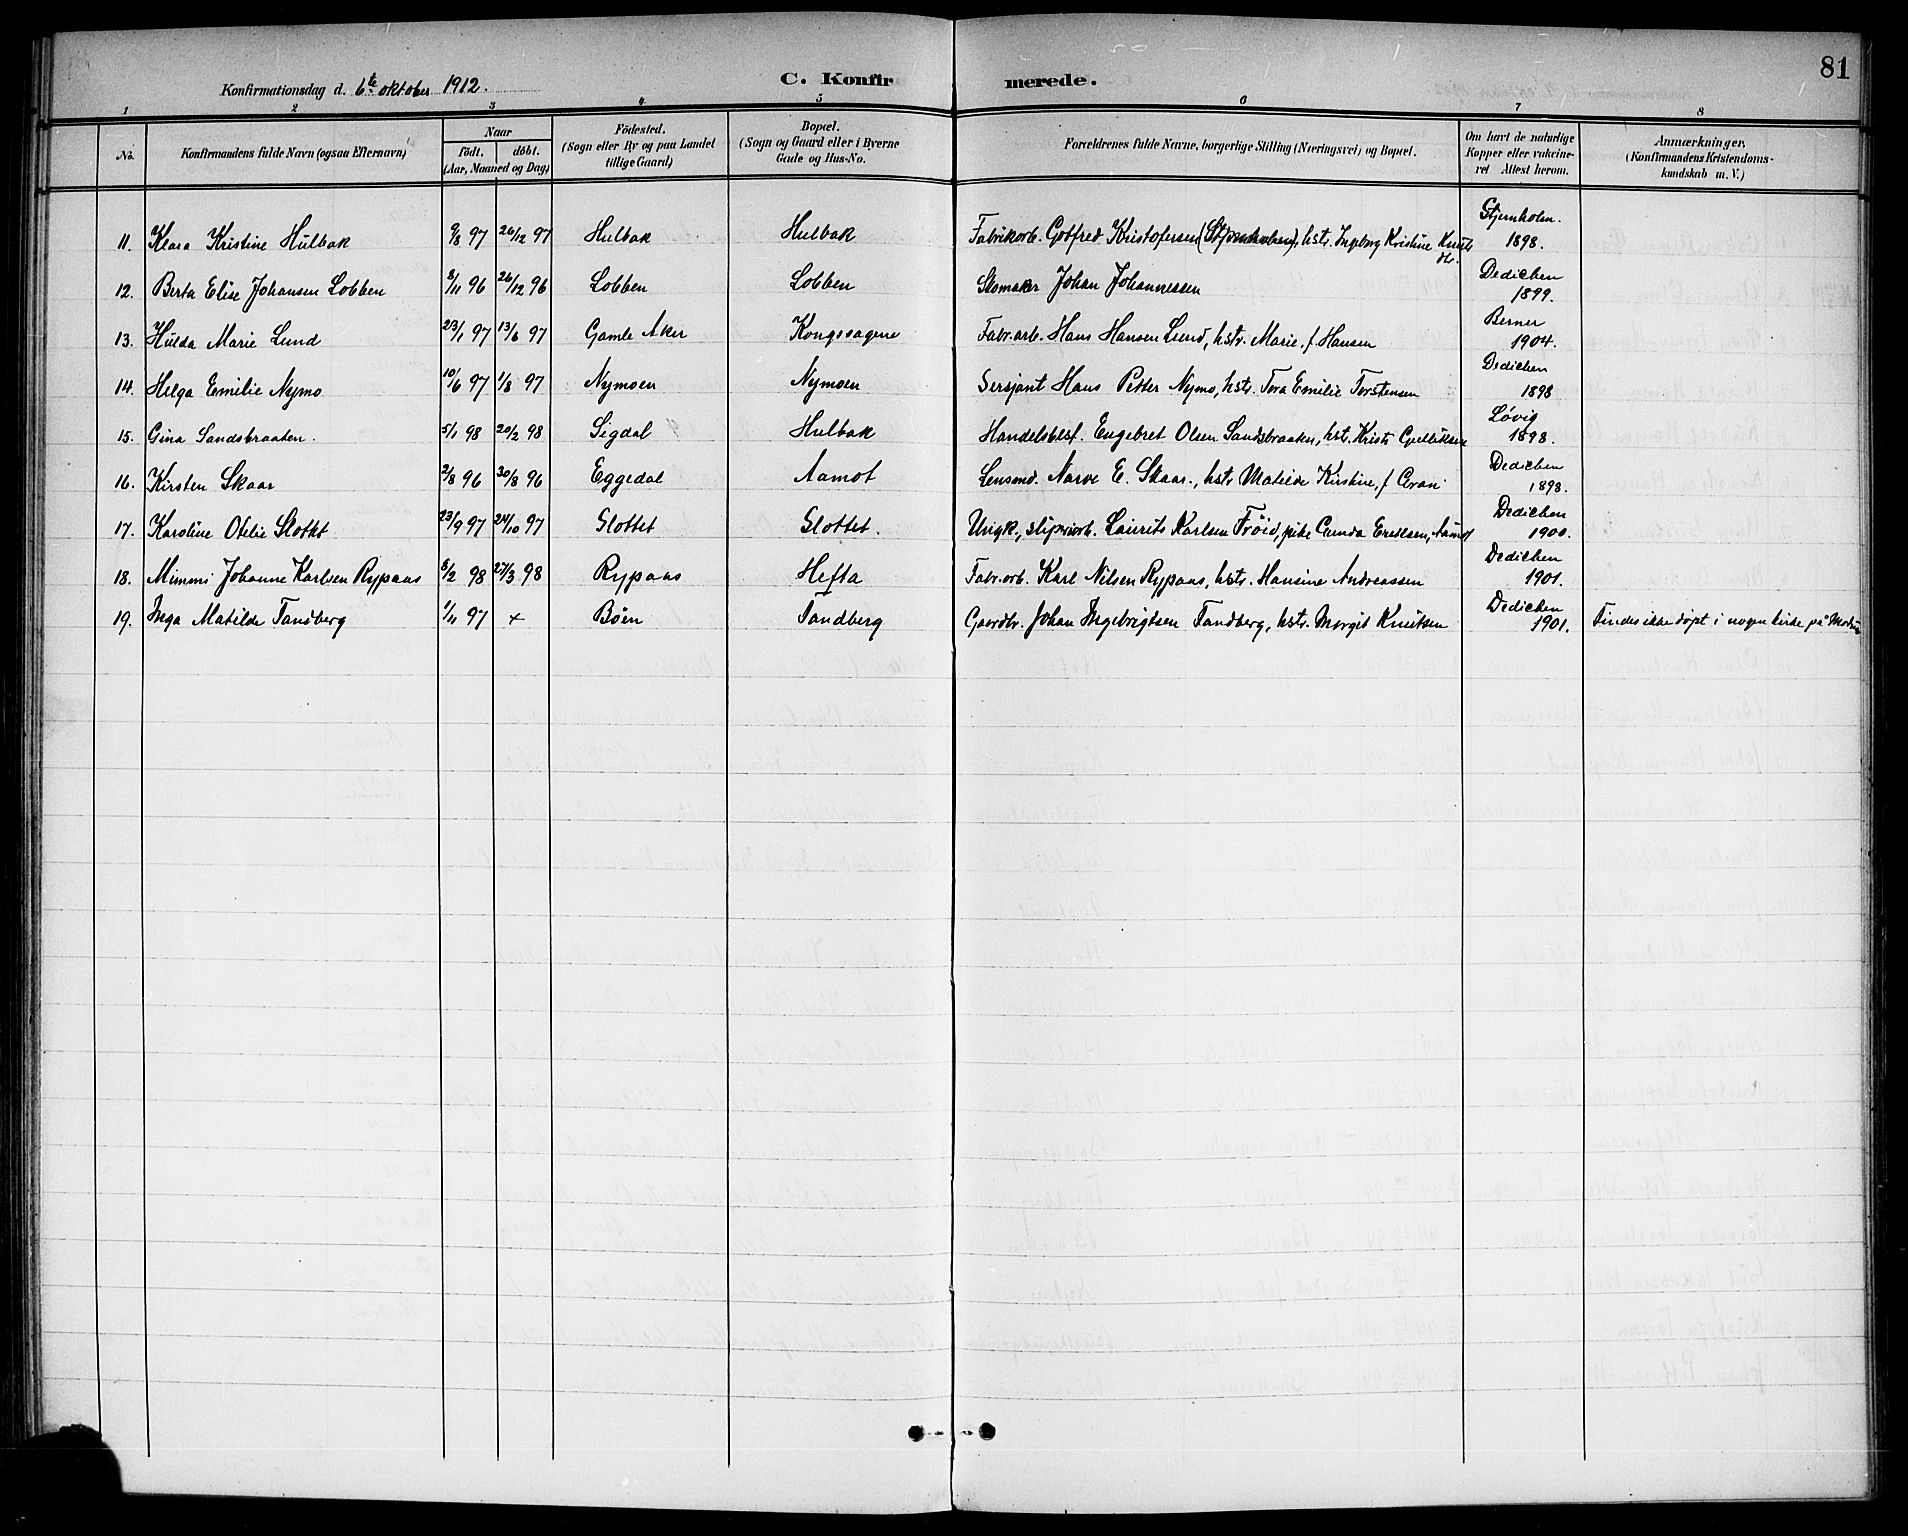 81
Konfirmationsdag d. 6te oktober 1912. C. Konfirmerede.
1 2 3 4 5 6 7 8
No. Konfirmandens fulde Navn (ogsaa Efternavn) Naar födt. döbt. (Aar, Maaned og Dag) Födested. (Sogn eller By og paa Landet tillige Gaard) Bopæl. (Sogn og Gaard eller i Byerne Gade og Hus-No. Forældrenes fulde Navne, borgerlige Stilling (Næringsvei) og Bopæl. Om havt de naturlige Kopper eller vakcineret Attest herom. Anmærkninger, (Konfirmandens Kristendomskundskab m. V.)
11. Klara Kristine Hulbak 9/8 97 26/12 97 Hulbak Hulbak Fabrikarb. Gotfred Kristofersen (Stjernholm), hstr. Ingeborg Kristine Knuts dtr. Stjernholm. 1898.
12. Berta Elise Johansen Lobben 8/11 96 26/12 96 Lobben Lobben Skomaker Johan Johannessen Dedichen 1899.
13. Hulda Marie Lund 23/1 97 13/6 97 Gamle Aker Kongssagene Fabr.arb. Hans Hansen Lund, hstr. Marie, f. Hansen Berner 1904.
14. Helga Emilie Nymo 10/6 97 1/8 97 Nymoen Nymoen Sersjant Hans Petter Nymo, hstr. Tora Emilie Torstensen Dedichen 1898
15. Gina Sandsbraaten. 5/1 98 20/2 98 Sigdal Hulbak Handelsbest. Engebret Olsen Sandsbraaten, hst. Kristi Gulliksen Løvig 1898.
16. Kirsten Skaar 2/8 96 30/8 96 Eggedal Aamot Lensmd. Narve E. Skaar, hstr. Matilde Kirstine, f. Gran Dedichen 1898.
17. Karoline Otelie Slottet 23/9 97 24/10 97 Slottet Slottet. Ungk., sliperiarb. Laurits Karlsen Frøid, pike Gunda Eriksen, Aamot Dedichen 1900.
18. Mimmi Johanne Karlsen Rypaas 8/2 98 27/3 98 Rypaas Hefta Fabr.arb. Karl Nilsen Rypaas, hstr. Hansine Andreassen Dedichen 1901.
19. Inga Matilde Tandberg 1/11 97 + Böen Tandberg Gaardbr. Johan Ingebrigtsen Tandberg, hstr. Margit Knutsen Dedichen 1901. Findes ikke døpt i nogen kirke på Modum